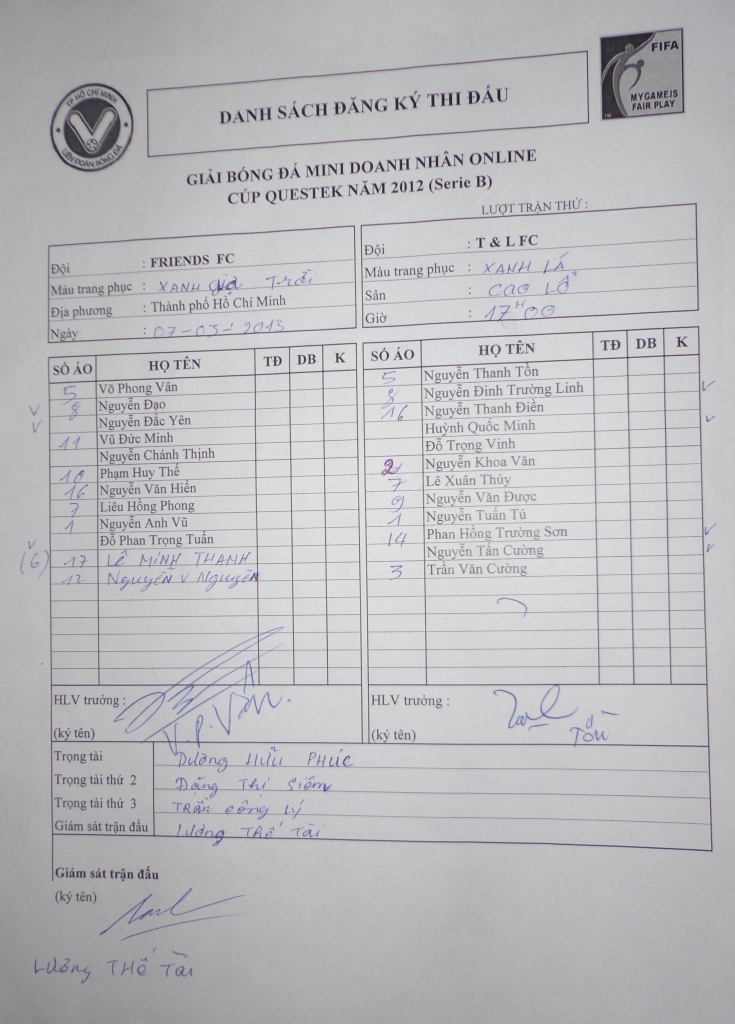 TP. HỒ CHÍ MINH
LIÊN ĐOÀN BÓNG ĐÁ
FIFA
MYGAMEIS
FAIR PLAY
DANH SÁCH ĐĂNG KÝ THI ĐẤU
GIẢI BÓNG ĐÁ MINI DOANH NHÂN ONLINE
CÚP QUESTEK NĂM 2012 (Serie B)
LƯỢT TRẬN THỨ :
Đội : FRIENDS FC
Màu trang phục : XANH da Trời
Địa phương : Thành phố Hồ Chí Minh
Ngày : 07-03-2013
Đội : T & L FC
Màu trang phục : XANH LÁ
Sân : CAO LỖ
Giờ : 17H00
SỐ ÁO HỌ TÊN TĐ DB K
5 Võ Phong Vân
8 Nguyễn Đạo
Nguyễn Đắc Yên
11 Vũ Đức Minh
Nguyễn Chánh Thịnh
10 Phạm Huy Thế
16 Nguyễn Văn Hiển
7 Liêu Hồng Phong
1 Nguyễn Anh Vũ
Đỗ Phan Trọng Tuấn
(6) 17 LÊ MINH THANH
12 Nguyễn V Nguyên
SỐ ÁO HỌ TÊN TĐ DB K
5 Nguyễn Thanh Tồn
8 Nguyễn Đinh Trường Linh
16 Nguyễn Thanh Điền
Huỳnh Quốc Minh
Đỗ Trọng Vinh
2 Nguyễn Khoa Văn
7 Lê Xuân Thủy
9 Nguyễn Văn Được
1 Nguyễn Tuấn Tú
14 Phan Hồng Trường Sơn
Nguyễn Tấn Cường
3 Trần Văn Cường
HLV trưởng :
(ký tên) V.P.Vân.
HLV trưởng :
(ký tên) Tồn
Trọng tài Dương HỮU PHÚC
Trọng tài thứ 2 Đặng Thị Giềm
Trọng tài thứ 3 TRẦN CÔNG LÝ
Giám sát trận đấu Lương THẾ TÀI
Giám sát trận đấu
(ký tên)
Lương THẾ TÀI